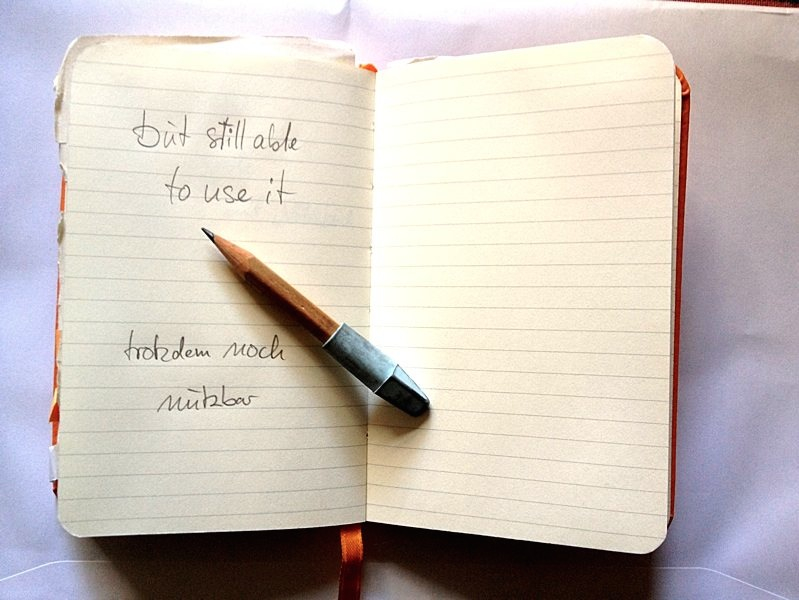 but still able
to use it
trotzdem noch
nützbar